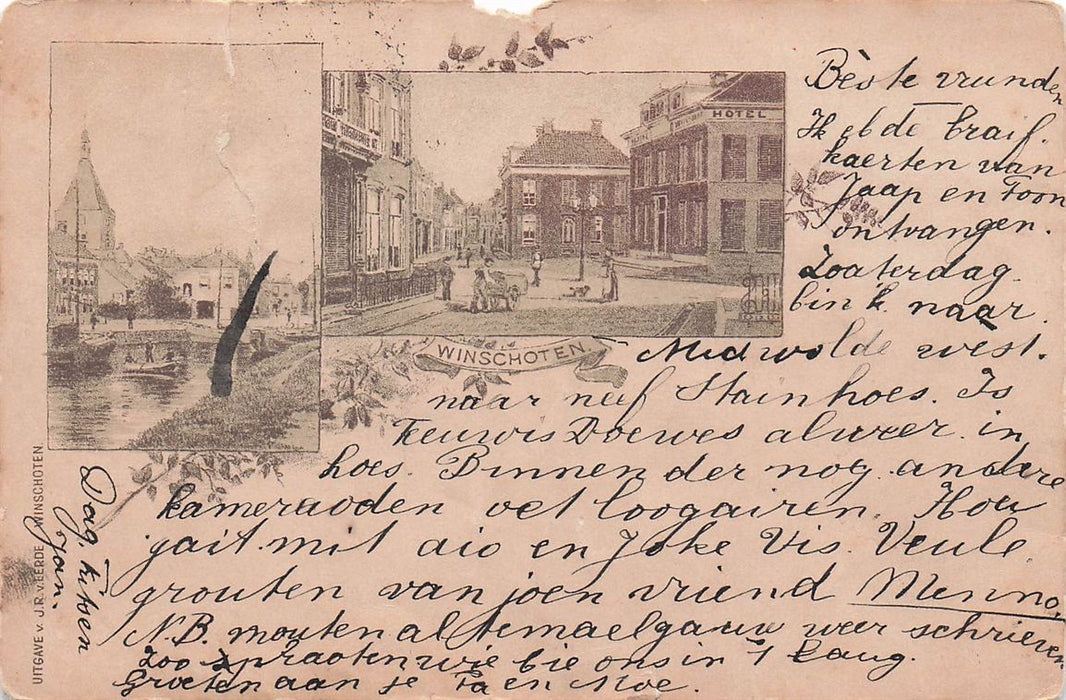 HOTEL
WINSCHOTEN
UITGAVE v. J.R. v. EERDE WINSCHOTEN
Bèste vrunden
Ik eb de braif
kaerten van
Jaap en Toon
ontvangen.
Zoaterdag
bin k naar
Midwolde west.
naar neef Stainhoes. Is
Teuwis Doewes alweer in
hoes. Binnen der nog andere
kameraoden oet loogairen. Hou
gait mit aio en Joke Vis. Veule
grouten van joen vriend Menno.
N.B. mouten altemaelgauw weer schrieven
Zoo spraoten wie bie ons in 't Laug.
Groeten aan je Pa en Moe.
Dag.
Jan.